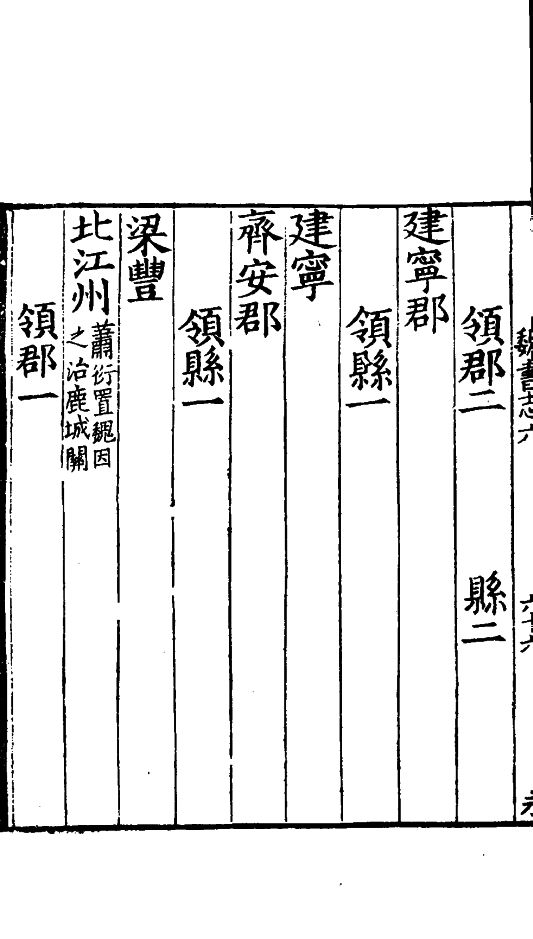 魏書志六 六十六
領郡二 縣二
建寧郡
領縣一
建寧
齊安郡
領縣一
梁豐
北江州 蕭衍置魏因
之治鹿城關
領郡一